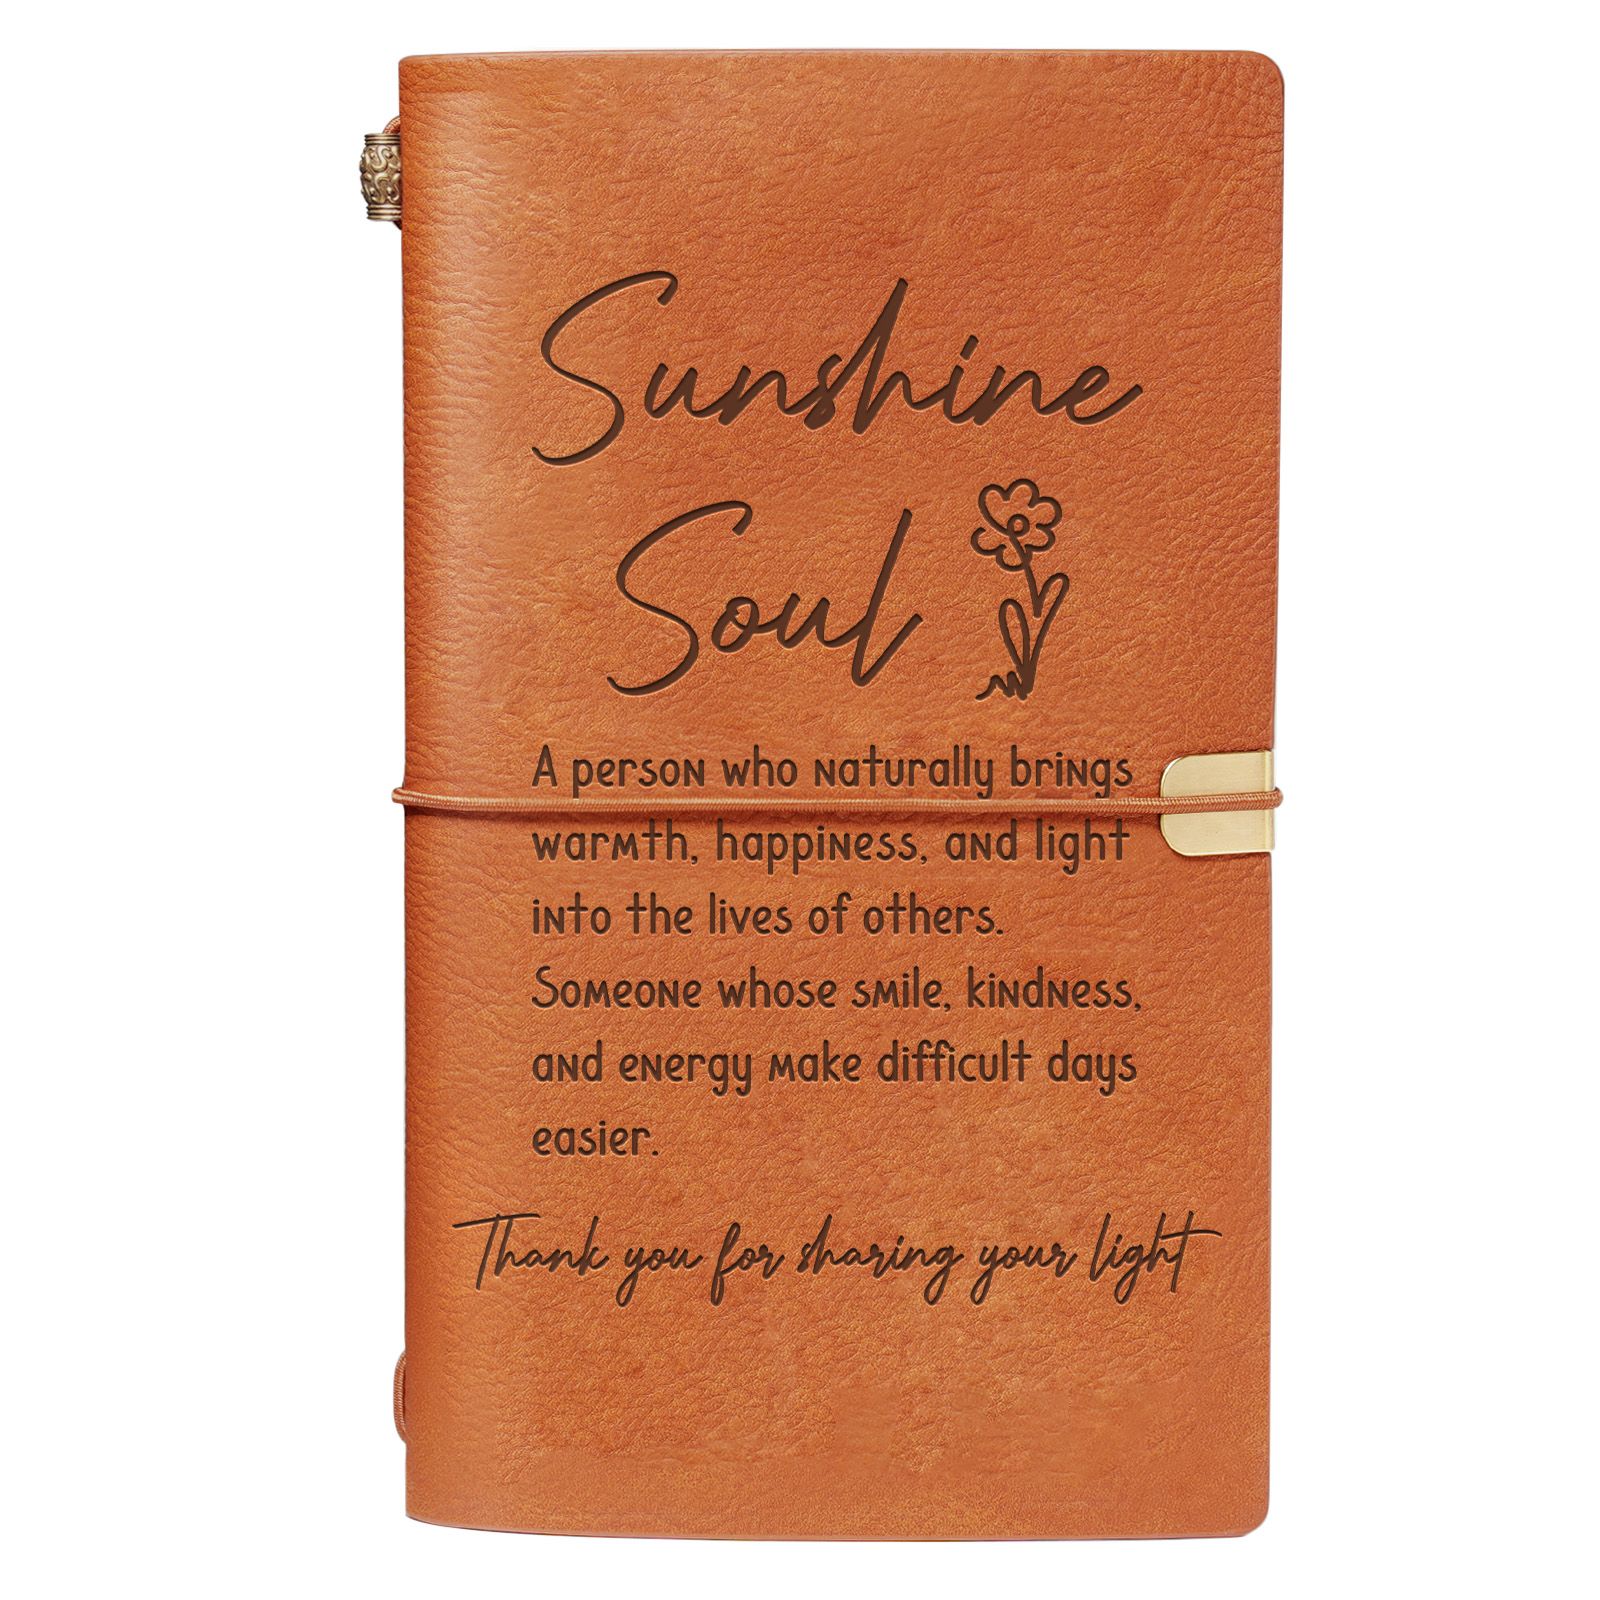 Sunshine
Soul
A person who naturally brings
warmth, happiness, and light
into the lives of others.
Someone whose smile, kindness,
and energy make difficult days
easier.
Thank you for sharing your light